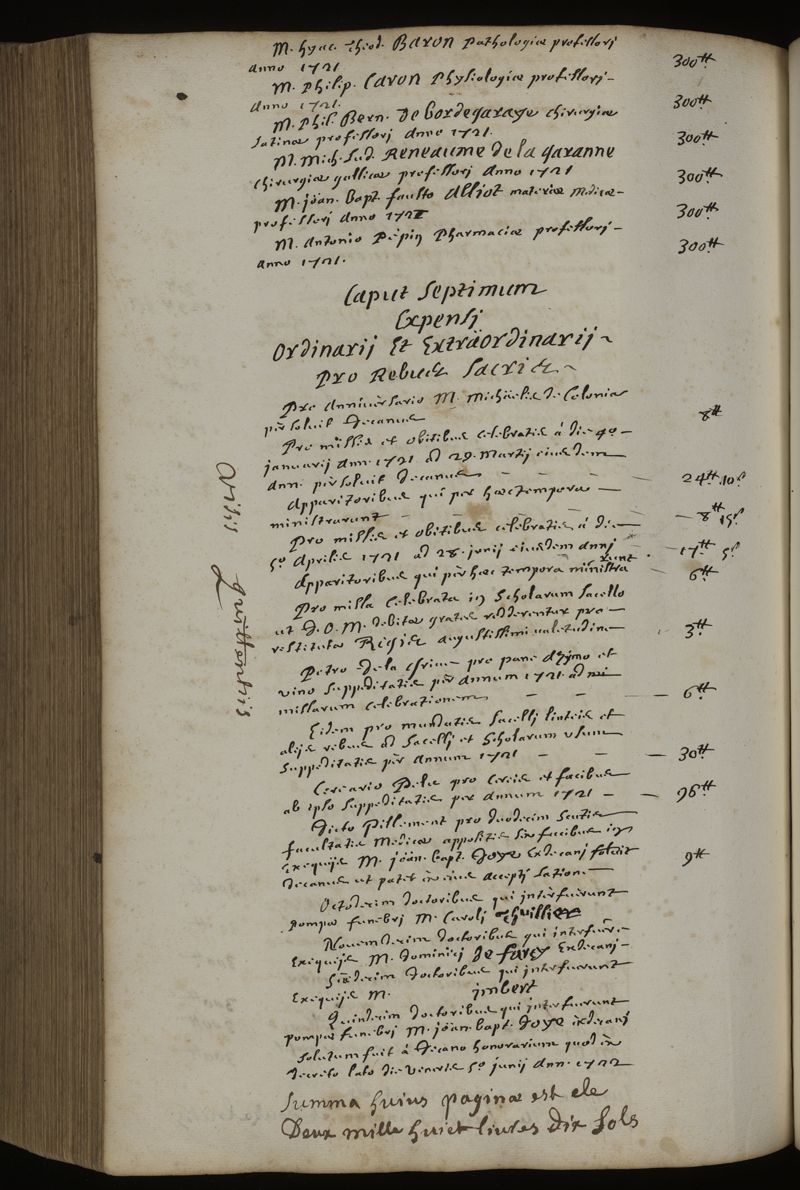 M. hyac. Theod. Baron Pathologiæ professorj
anno 1721 300tt
M. Philip. Caron Physiologiæ professorj
anno 1721. 300tt
M. Phil. Bern. De bordegaraye chirurgiæ
latinæ professorj anno 1721. 300tt
M. Mich. Lud. Reneaume de la garanne
chirurgiæ gallicæ professorj anno 1721 300tt
M. joän. bapt. fausto Alliot materiæ Medicæ
professorj anno 1721 300tt
M. Antonio Pepin Pharmaciæ professorj
anno 1721. 300tt
Caput Septimum
Expensj
Ordinarij Et Extraördinarij
Pro Rebus Sacris
Pro Anniversario M. Michäelis de Colonia
persoluit Decanus 8tt
Pro missis et obitibus celebratis á die 4o
januarij ann. 1721 ad 29. Martij eiusdem
anni persoluit decanus 24tt 10s
Apparitoribus qui per hæc tempora
ministrarunt 8tt 15s
Pro missis et obitibus celebratis á die
5o Aprilis 1721 ad 28. junij eiusdem annj 17tt 5s
Apparitoribus qui per hæc tempora ministrarunt 6tt
Pro missa celebrata in Scholarum Sacello
ut D. O. M. debitæ grates redderentur pro
restituta Regis augustissimi valetudine 3tt
Petro de la pro pane azymo et
vino suppeditatis per annum 1721 ad
missarum celebrationem 6tt
Eidem pro mundatis Sacellj linteis et
alijs rebus ad Sacellj et Scholarum usum
suppeditatis per annum 1721 30tt
Cereario Pelé pro cereis et facibus
ab ipso suppeditatis per annum 1721 96tt
Dicto Pillement pro duodecim Scutis
facultatis Medicæ appositis sex facibus in
Exequijs M. joän. bapt. Doye Exdecanj soluit
Decanus ut patet in eius acceptj latione 9tt
Octodecim doctoribus qui interfuerunt
pompæ funebrj M. Carolj Thuillier
Novemdecim doctoribus qui interfuere
Exequijs M. Dominicj de farcy Exdecanj
Sexdecim doctoribus qui interfuerunt
Exequijs M. jmbert
Quindecim doctoribus qui interfuerunt
pompæ funebrj M. joän. bapt. Doye exdecanj
solutum fuit á Decano honorarium quod in
decreto lato die veneris 5o junij ann. 1722
Summa huius paginæ est de
Deux mille huict livres dix sols